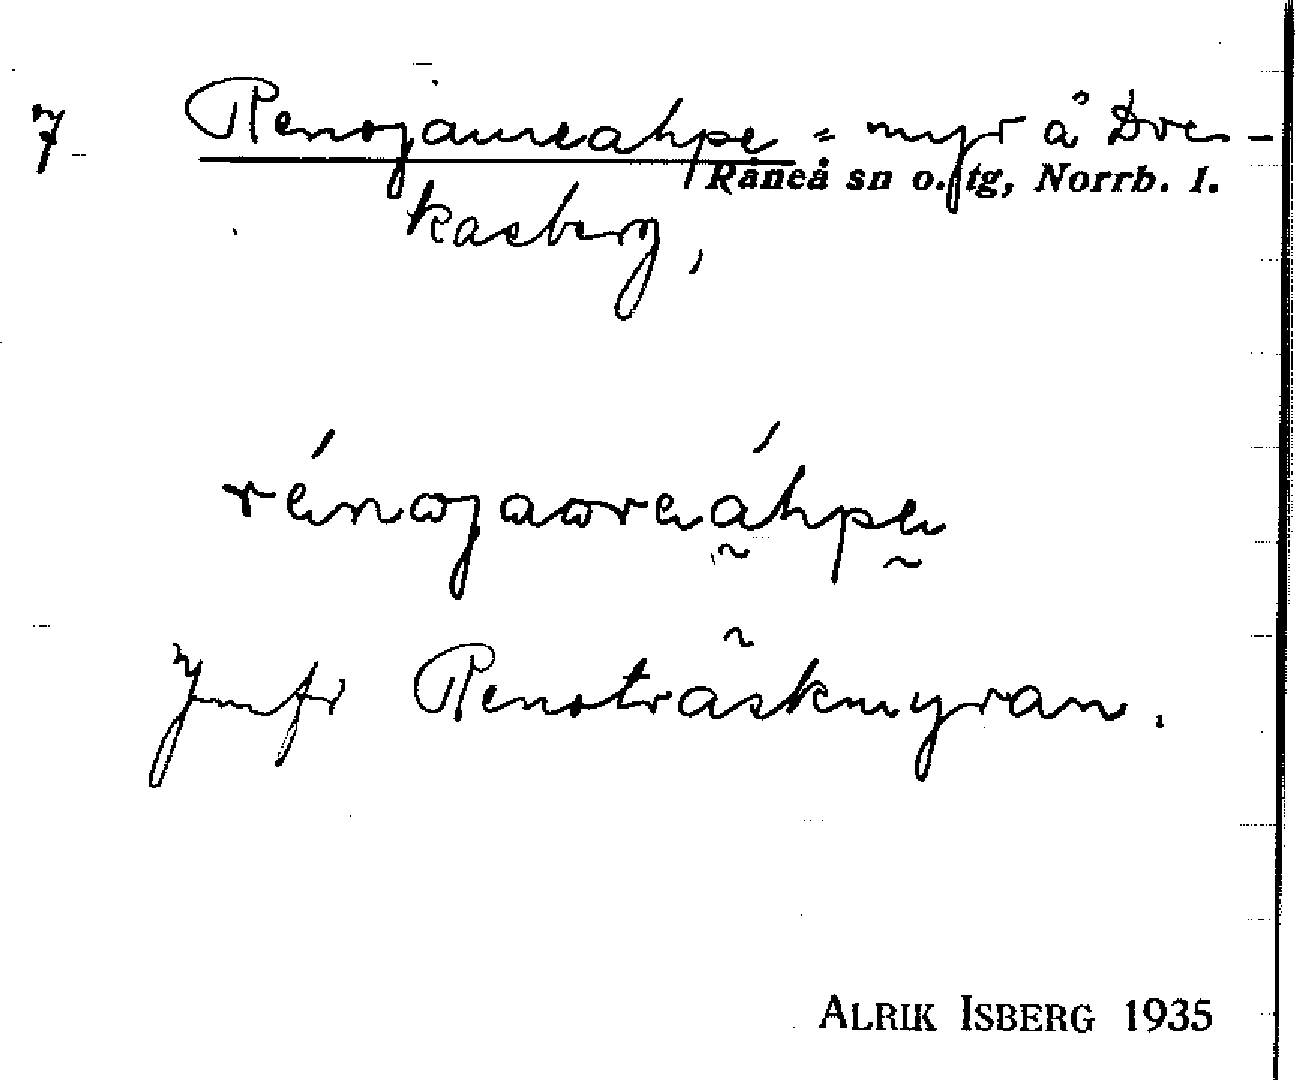 7 Renojaureahpe = myr å Dve-
Råneå sn o. tg, Norrb. l.
kasberg,
rénωjaωreáhpe
Jmfr Renoträskmyran.
ALRIK ISBERG 1935